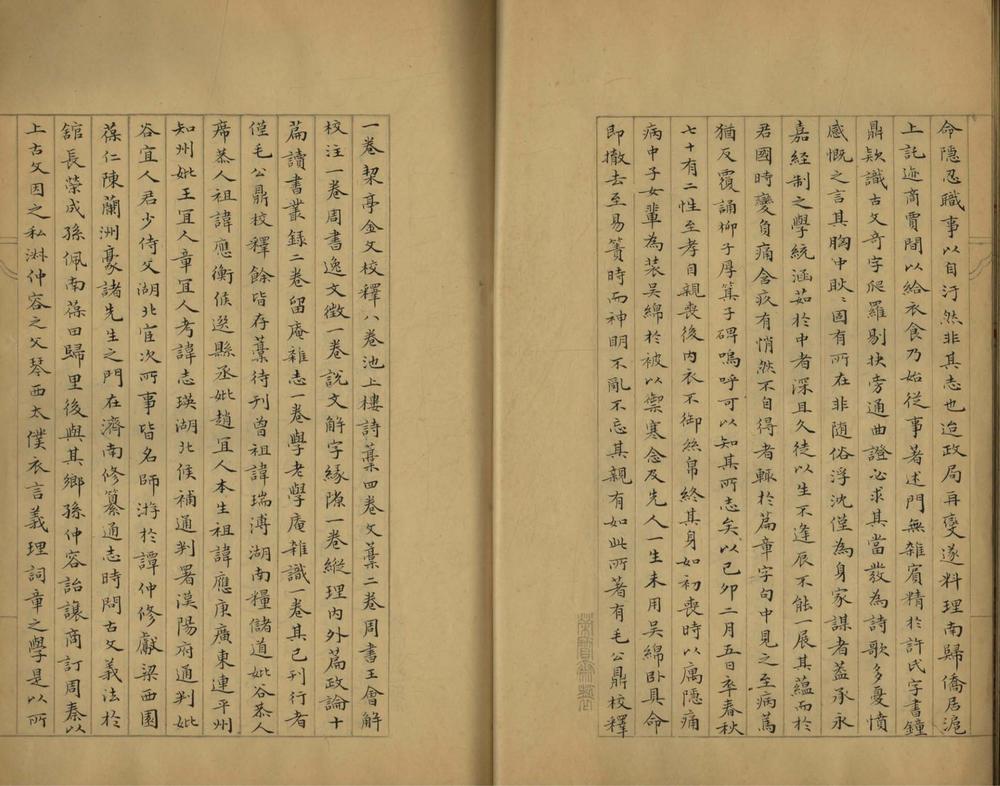 命隱忍職事以自汙然非其志也迨政局再變遂料理南歸僑居滬
上託迹商賈間以給衣食乃始從事著述門無雜賓精於許氏字書鐘
鼎欵識古文奇字爬羅剔抉旁通曲證必求其當發為詩歌多憂憤
感慨之言其胸中耿〻固有所在非随俗浮沈僅為身家謀者蓋承永
嘉經制之學統涵茹於中者深且久徒以生不逢辰不能一展其蘊而於
君國時變負痛含疚有悄然不自得者輒於篇章字句中見之至病篤
猶反覆誦柳子厚箕子碑嗚呼可以知其所志矣以己卯二月五日卒春秋
七十有二性至孝自親喪後內衣不御絲帛終其身如初喪時以厲隱痛
病中子女輩為装吳綿於被以禦寒念及先人一生未用吳綿卧具命
即撤去至易簀時而神明不亂不忘其親有如此所著有毛公鼎校釋
一卷栔亭金文校釋八卷池上樓詩藁四卷文藁二卷周書王會解
校注一卷周書逸文徵一卷說文解字緣隙一卷縱理內外篇政論十
篇讀書叢錄二卷留庵雜志一卷學老學庵雜識一卷其已刊行者
僅毛公鼎校釋餘皆存藁待刊曾祖諱瑞溥湖南糧儲道妣谷恭人
席恭人祖諱應衡候選縣丞妣趙宜人本生祖諱應庚廣東連平州
知州妣王宜人章宜人考諱志瑛湖北候補通判署漢陽府通判妣
谷宜人君少侍父湖北宦次所事皆名師游於譚仲修獻梁西園
葆仁陳蘭洲豪諸先生之門在濟南修纂通志時問古文義法於
舘長榮成孫佩南葆田歸里後與其鄉孫仲容詒讓商訂周秦以
上古文因之私淋仲容之父琴西太僕衣言義理詞章之學是以所